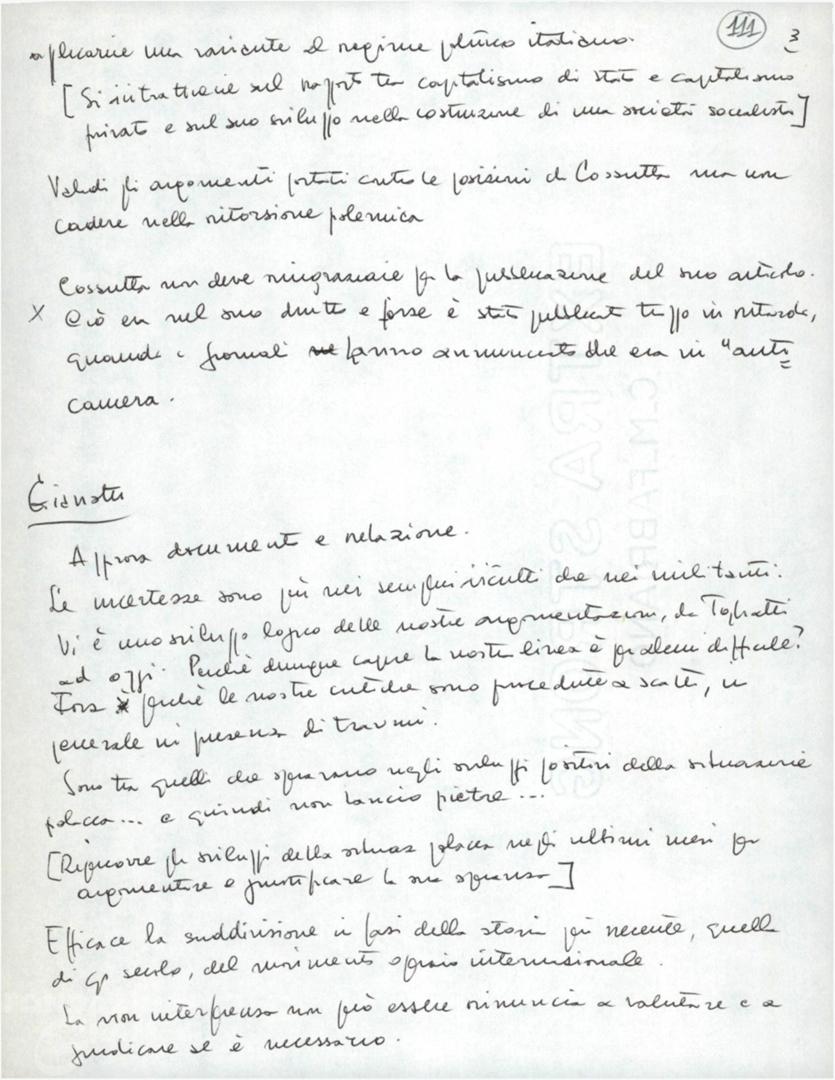 111 3
applicarne una variante al regime politico italiano.
[Si intrattiene sul rapporto tra capitalismo di stato e capitalismo
privato e sul suo sviluppo nella costruzione di una società socialista]
Validi gli argomenti portati contro le posizioni di Cossutta ma non
cadere nella ritorsione polemica
Cossutta non deve ringraziare per la pubblicazione del suo articolo.
X Ciò era nel suo diritto e forse è stato pubblicato troppo in ritardo,
quando i giornali hanno annunciato che era in "anti
camera.
Gianotti
Approva documento e relazione.
Le incertezze sono più nei semplici iscritti che nei militanti.
Vi è uno sviluppo logico delle nostre argomentazioni, da Togliatti
ad oggi. Perché dunque capire la nostra linea è problema difficile?
Forse perché le nostre critiche sono procedute a scatti, in
generale in presenza di traumi.
Sono tra quelli che speravano negli sviluppi positivi della situazione
polacca... e quindi non lancio pietre...
[Ripercorre gli sviluppi della situaz polacca negli ultimi mesi per
argomentare e giustificare la sua speranza]
Efficace la suddivisione in fasi della storia più recente, quella
di qs secolo, del movimento operaio internazionale.
La non interferenza non può essere rinuncia a valutare e a
giudicare se è necessario.